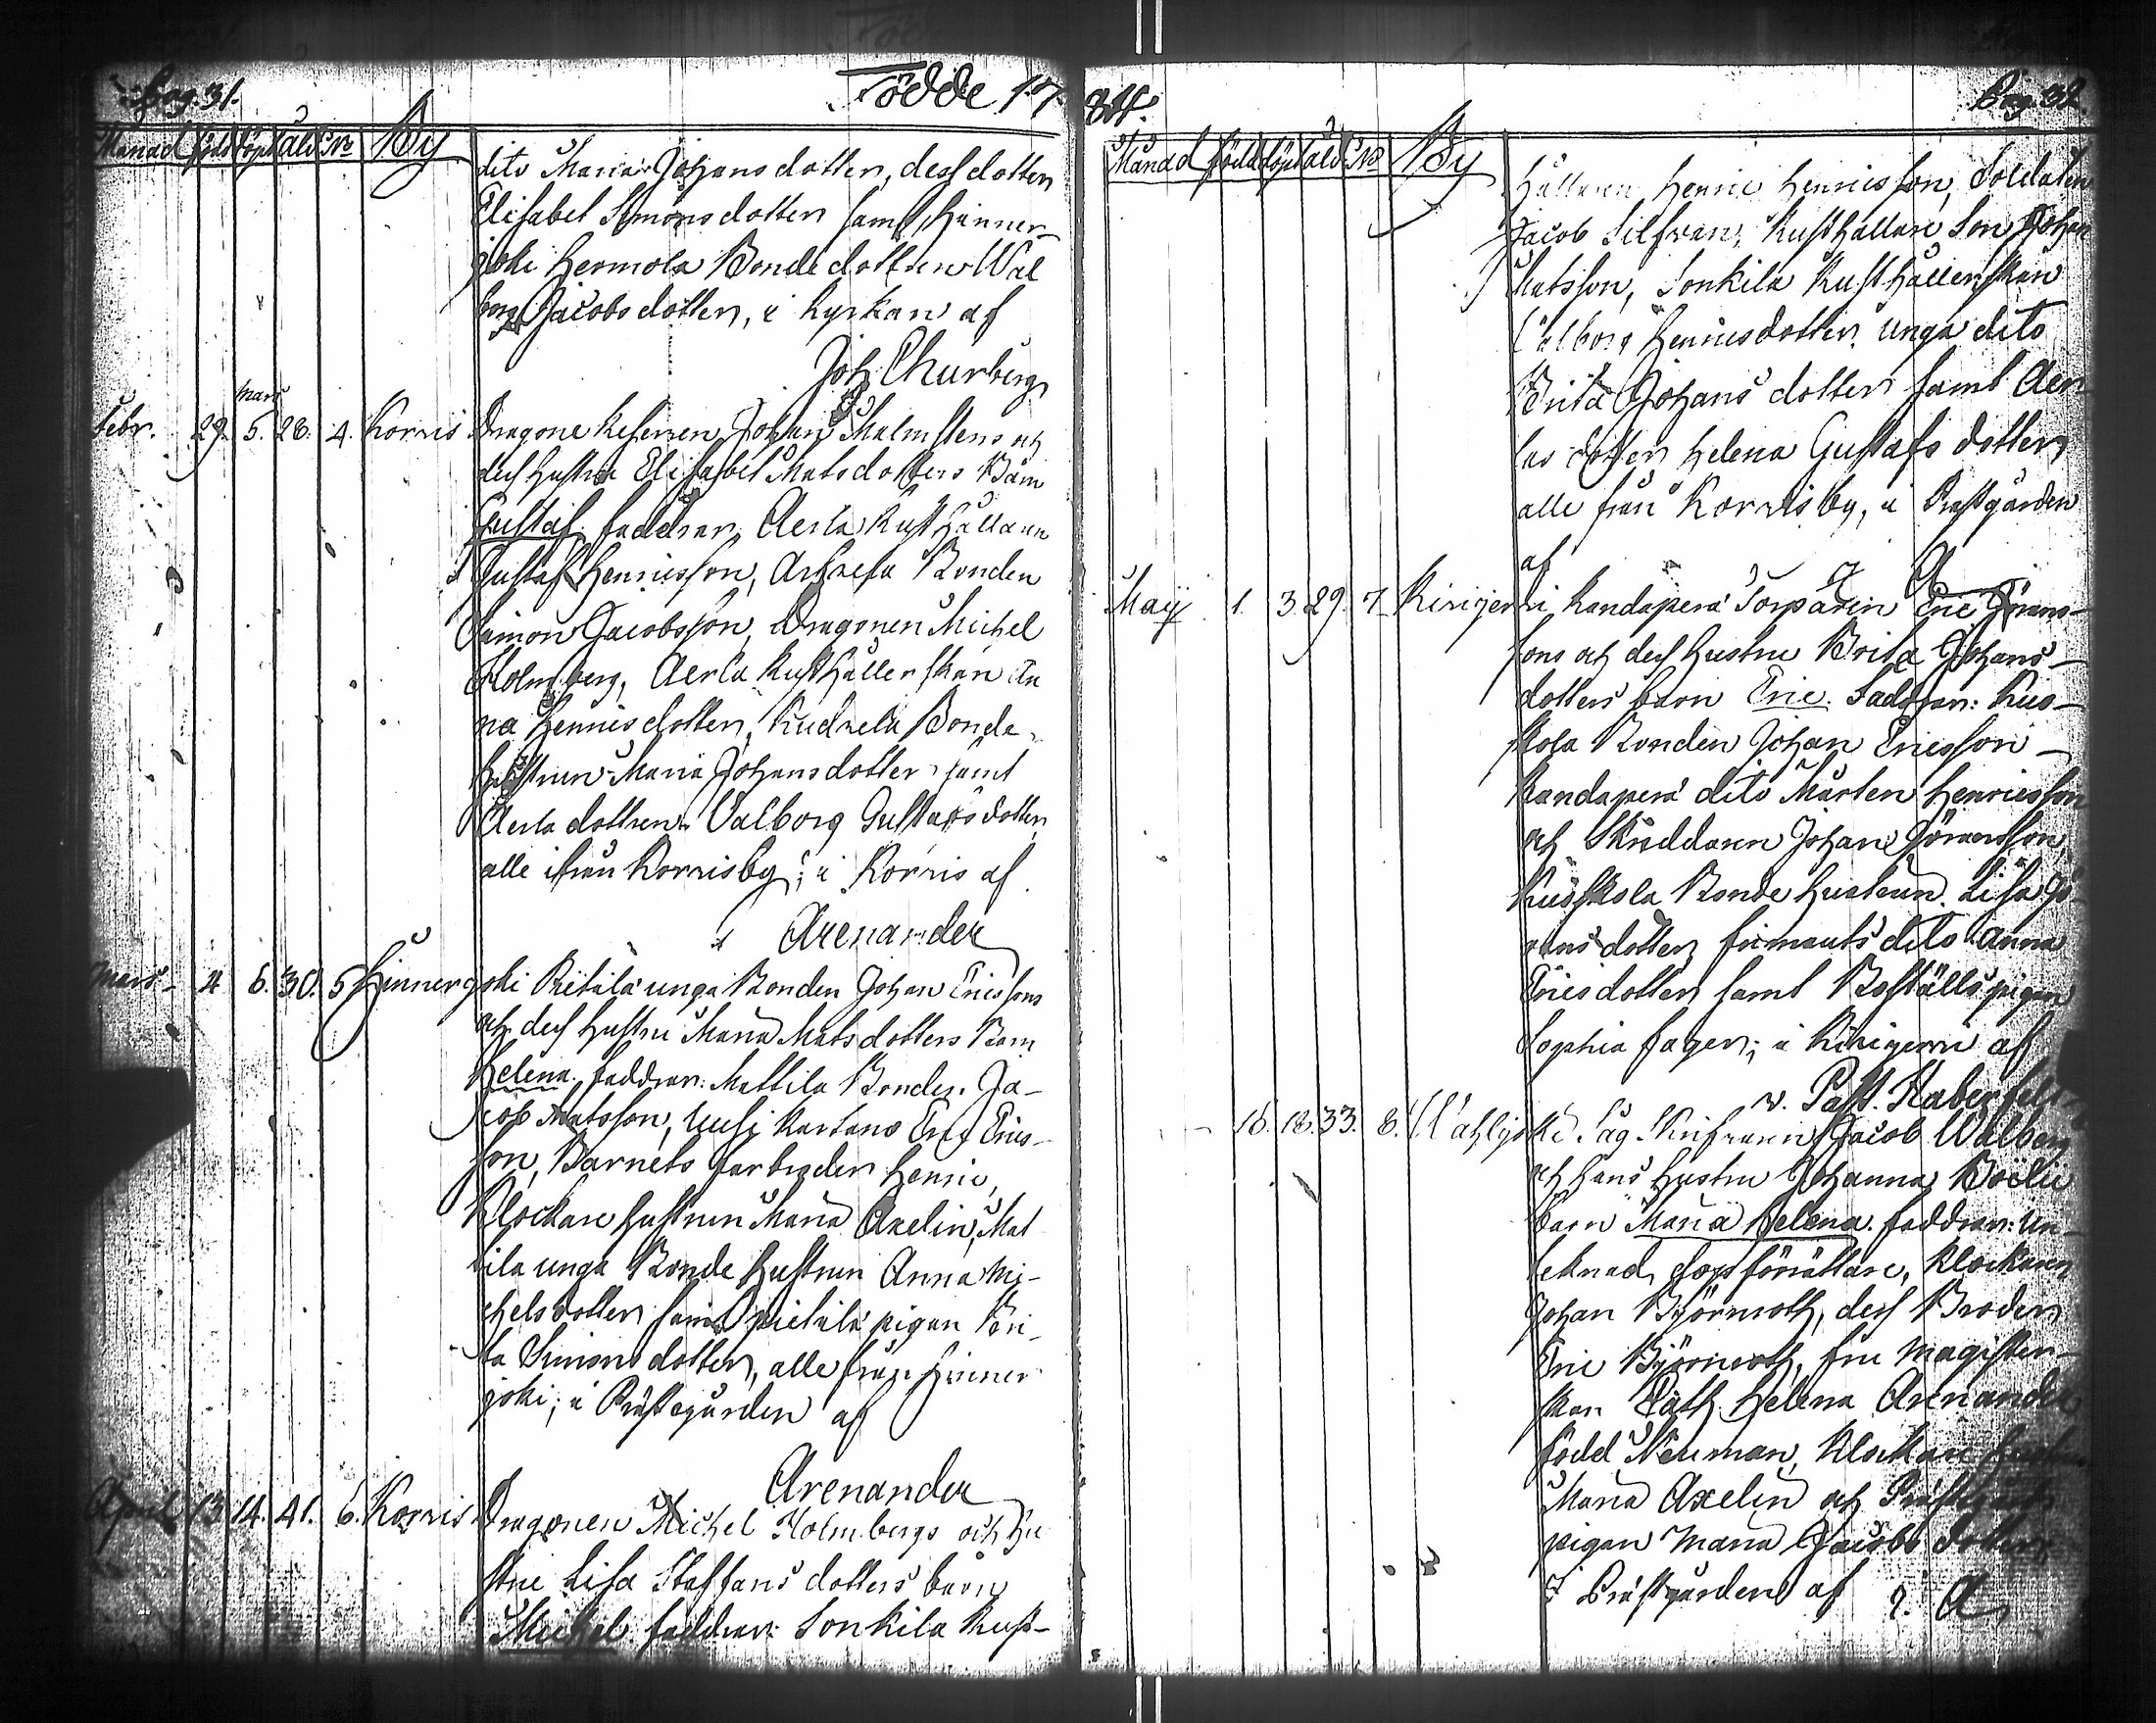 Pag. 31.
Födde 17
Månad född döpt åld No By
dito Maria Johansdotter, dess dotter
Elisabet Simonsdotter samt Hinner-
joki Hermola Bondedottren Wal
borg Jacobsdotter, i Kyrkan af
Joh. Churberg
mars
Febr. 29. 5. 28. 4. Korvis Dragone Reserven Johan Malmstens och
dess hustru Elisabet Matsdotters Barn
Gustaf. faddrar, Aerla Rusthållaren
Gustaf Henricsson, Bonden
Simon Jacobsson, Dragonen Michel
Holmberg, Aerla Rusthållerskan An
na Henricsdotter, Kudnela Bonde
hustrun Maria Johansdotter samt
Aerla dottren Valborg Gustafsdotter
alle ifrån Korvis by; i Korvis af
Arenander
Mars 4 6. 30. 5 Hinnerjoki Pietilä unga Bonden Johan Ericssons
och dess hustru Maria Matsdotters Barn
Helena. faddrar: Mattila Bonden Ja-
cob Matsson, Uusi Kartano Eric Erics-
son, Barnets farbroder Henric,
Klockare hustrun Maria Axelin, Mat
tila unga Bonde hustrun Anna Mi-
chelsdotter samt Pietilä pigan Bri-
ta Simonsdotter, alle från Hinner
joki; i Prästegården af
Arenander
April 13 14. 41. 6. Korvis Dragonen Michel Holmbergs och Hu
stru Lisa Staffans dotters barn
Michel. faddrar: Sonkila Rust-
84.
Pag. 32
Månad född döpt åld No By
hållaren Henric Henricsson, Soldaten
Jacob Silfvan, Rusthållare Son Johan
Matsson, Sonkila Rusthållerskan
Valborg Henricsdotter, unga dito
Brita Johansdotter samt Aer
las dotter Helena Gustafsdotter
alle från Korvis by, i Prestgården
af A
Maij 1. 3. 29. 7 Kirigerri, Randaperä Torparen Eric Görans-
sons och dess hustru Brita Johans-
dotters barn Eric. faddrar: Kus-
kola Bonden Johan Ericsson
Randaperä dito Mårten Henricsson
och Skräddaren Johan Göransson
Kuskola Bonde hustrun Lisa Gö
rans dotter, dito Anna
Ericsdotter samt Boställs pigan
Sophia Fager; i Kirigerri af
v. Past. Haberfelt
16. 18. 33. 8. Wahljoki Såg Skrifvaren Jacob Walberg
och hans hustru Johanna Boëlii
barn Maria Helena. faddrar: Un-
tecknad dopförrättare, Klockaren
Johan Björnroth, dess Broder
Eric Björnroth, fru Magister-
skan Cath. Helena Arenander
född Neuman, Klockare hustrun
Maria Axelin och Prästgårds
pigan Maria Jacobs dotter
i Prästgården af A